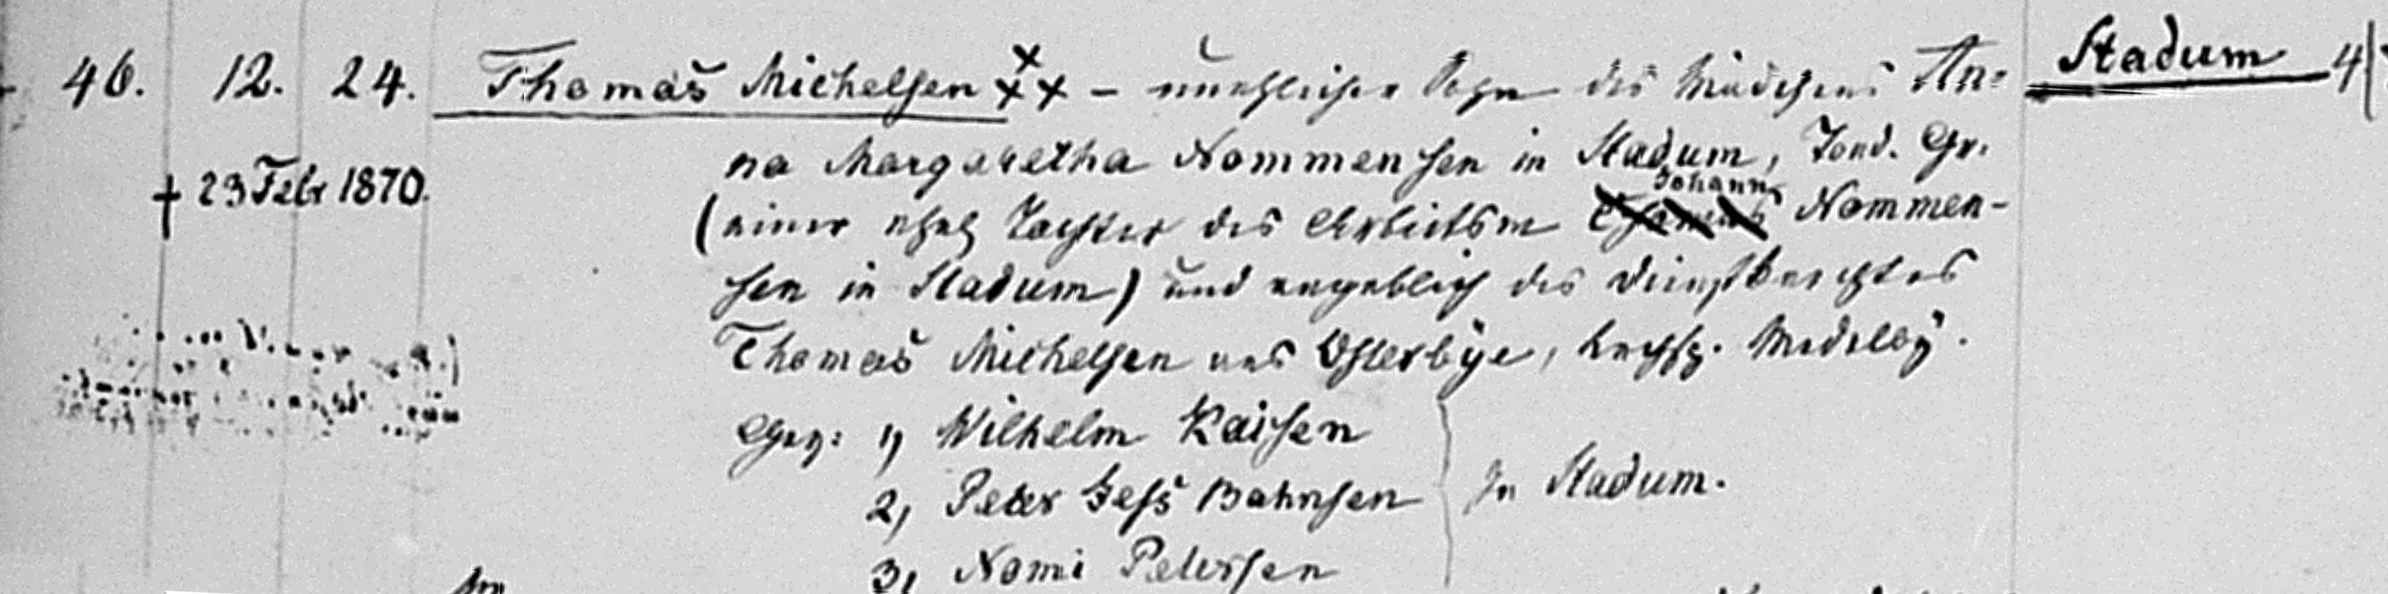 46. 12. 24. Thomas Michelsen xxx – unehlicher Sohn des Mädchens An= Stadum 4
na Margaretha Nommensen in Stadum, Tond. Gr.
† 23 Febr 1870.
Johann
(einer ehel Tochter des Arbeitsm Nommen-
sen in Stadum) und angeblich des Dienstknechtes
Thomas Michelsen aus Osterbye, Kirchsp. Medelby.
Gev: 1, Wilhelm Kaisen
2, Peter Jess Bahnsen
In Stadum.
3, Nomi Petersen